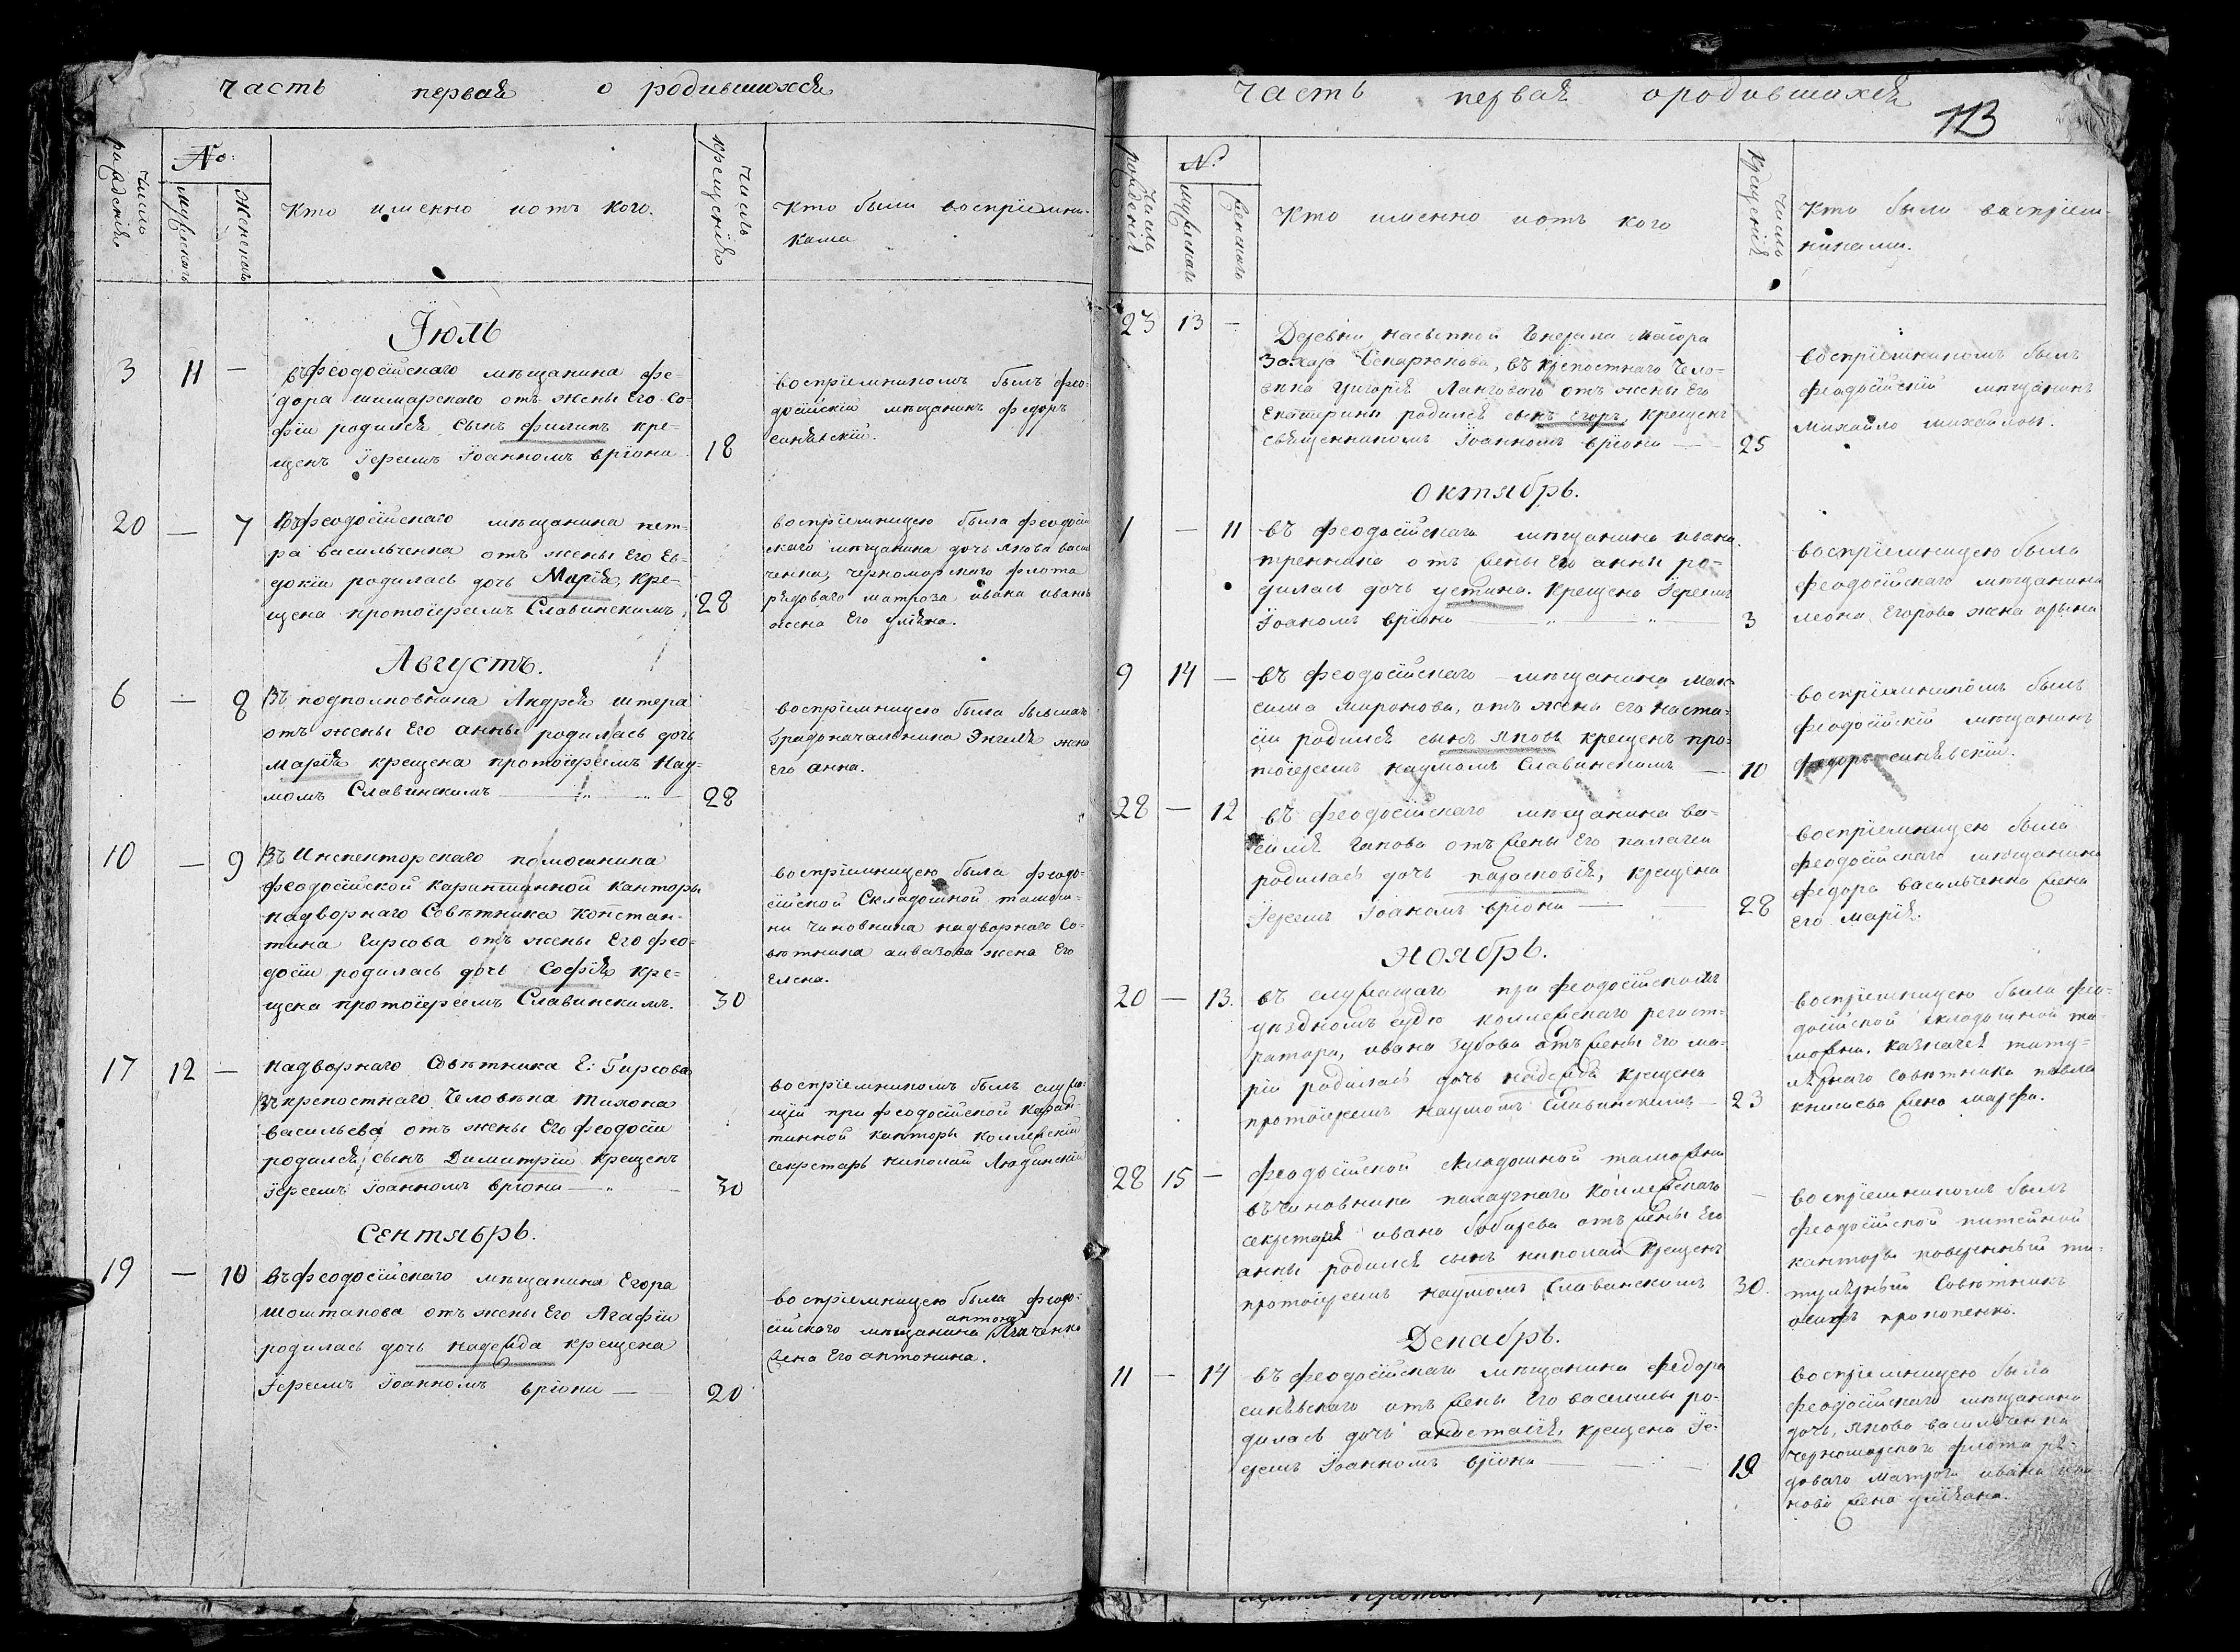 Часть первая о родившихся
число рождения
№:
мужескаго
женскаго
Кто именно и отъ кого.
число крещения
Кто были воспрїемни-
ками
Їюль
3 11 —
въ Феодосїйскаго мѣщанина Фе-
дора отъ жены Его Со-
фїи родился сынъ Филипъ кре-
щенъ Їереемъ Їоанномъ Врїони 18
воспрїемникомъ былъ фео-
досїйскїй мѣщанинъ федоръ
синѣвскїй.
20 — 7
Въ Феодосїйскаго мѣщанина пет-
ра васильченка отъ жены Его Ев-
докїи родилась дочь Марїя, кре-
щена протоїереемъ Славинскимъ, 28
воспрїемницею была феодосїй
скаго мѣщанина дочь якова васил
ченка, черноморскаго флота
рядоваго матроза ивана иванова
жена Его улїяна.
Августъ.
6 — 8
Въ подполковника Андрея штера
отъ жены Его анны родилась дочь
Марїя крещена протоїереемъ Нау-
момъ Славинскимъ 28
воспрїемницею была бывшаго
Градоначальника Энгеля жена
Его анна.
10 — 9
Въ Инспекторскаго помошника
феодосїйской карантинной канторы
надворнаго Совѣтника констан-
тина Гирсова отъ жены Его фео-
досїи родилась дочь Софїя кре-
щена протоїереемъ Славинскимъ. 30
воспрїемницею была феодо-
сїйской Складошной таможе-
ни чиновника надворнаго Со-
вѣтника аивазова жена Его
Елена.
17 12 —
надворнаго Совѣтника Е: Гирсова
въ крепостнаго Человѣка тихона
васильева отъ жены Его феодосїи
родился сынъ Димитрїй крещенъ
Їереемъ Їоанномъ врїони 30
воспрїемникомъ былъ служа-
щїй при феодосїйской каран-
тинной канторы коллежскїй
секретарь николай Людинскїй
Сентябрь.
19 — 10
въ феодосїйскаго мѣщанина Егора
шоштакова отъ жены Его Агафїи
родилась дочь надежда крещена
Їереемъ Їоанномъ врїони 20
воспрїемницею была феодо-
антона
сїйскаго мѣщанина
жена Его антонина.
Часть первая о родившихся
113
число рождения
№
мужескаго
женскаго
Кто именно и отъ кого
число крещения
Кто были воспрїем-
никами.
23 13 —
Деревни насыпной Енерала маїора
Захара, въ крепостнаго Чело-
вѣка григорїя Лангового отъ жены Его
Екатирины родился сынъ Егоръ, крещенъ
священникомъ Їоанномъ врїони 25
воспрїемникомъ былъ
феодосїйскїй мѣщанинъ
михайло михайловъ.
Октябрь.
1 — 11
въ феодосїйскаго мѣщанина ивана
отъ жены Его анны ро-
дилась дочь устина. крещена Їереемъ
Їоаномъ врїони 3
воспрїемницею была
феодосїйскаго мѣщанина
леона Егорова жена арына
9 14 —
въ феодосїйскаго мѣщанина мак-
сима миронова, отъ жены Его наста-
сїи родился сынъ яковъ крещенъ про-
тоїереемъ наумомъ Славинскимъ 10
воспрїемникомъ былъ
феодосїйскїй мѣщанинъ
федоръ синѣвскїй.
28 — 12
въ феодосїйскаго мѣщанина ва-
силїя гапова отъ жены Его палагеи
родилась дочь парасковїя, крещена
Їереемъ Їоаномъ врїони 28
воспрїемницею была
феодосїйскаго мѣщанина
федора васильченка жена
Его марїя.
Ноябрь.
20 — 13.
въ служащаго при феодосїйскомъ
уѣздномъ судѣ коллежскаго регист-
ратора, ивана зубова отъ жены Его ма-
рїи родилась дочь надежда крещена
протоїереемъ наумомъ Славинскимъ 23
воспрїемницею была фео-
досїйской складошной та-
можни, казначея титу-
лярнаго совѣтника павла
княжева жена марфа.
28 15 —
феодосїйской складошной таможни
въ чиновника коллежскаго
секретаря ивана бобырева отъ жены Его
анны родился сынъ николай крещенъ
протоїереемъ наумомъ Славинскимъ 30.
воспрїемникомъ былъ
феодосїйской питейной
канторы повѣренный ти-
тулярный Совѣтникъ
осипъ прокопенко.
Декабрь.
11 — 14
въ феодосїйскаго мѣщанина федора
синѣвскаго отъ жены Его василисы ро-
дилась дочь анастасїя, крещена Їе-
реемъ Їоанномъ врїони 19
воспрїемницею была
феодосїйскаго мѣщанина
дочь, якова васильченка
черноморскаго флота ря-
доваго матроза ивана ива-
нова жена улїяна.